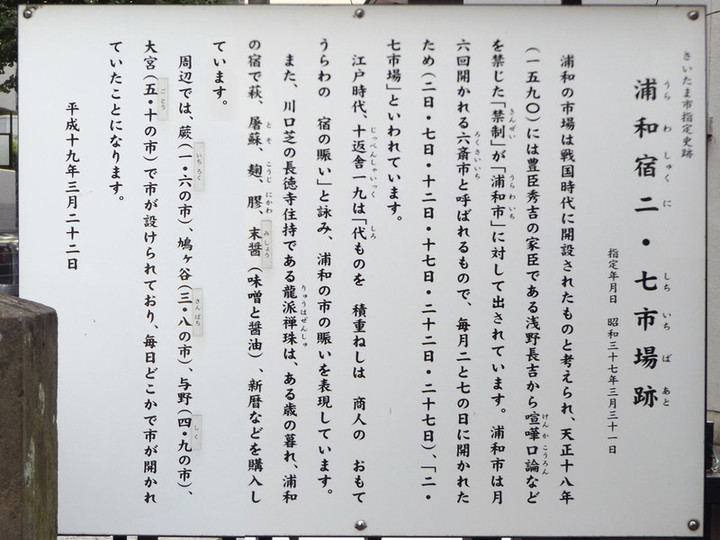 さいたま市指定史跡
浦和宿二・七市場跡
うらわしゅくに しちいちばあと
指定年月日 昭和三十七年三月三十一日
浦和の市場は戦国時代に開設されたものと考えられ、天正十八年
(一五九〇)には豊臣秀吉の家臣である浅野長吉から喧嘩口論など
けんかこうろん
を禁じた「禁制」が「浦和市」に対して出されています。浦和市は月
きんぜい うらわいち
六回開かれる六斎市と呼ばれるもので、毎月二と七の日に開かれた
ろくさいいち
ため(二日・七日・十二日・十七日・二十二日・二十七日)、「二・
七市場」といわれています。
江戸時代、十返舎一九は「代ものを 積重ねしは 商人の おもて
じっぺんしゃいっく しろ
うらわの 宿の賑い」と詠み、浦和の市の賑いを表現しています。
また、川口芝の長徳寺住持である龍派禅珠は、ある歳の暮れ、浦和
りゅうはぜんしゅ
の宿で萩、屠蘇、麹、膠、末醤(味噌と醤油)、新暦などを購入し
とそ こうじ にかわ みしょう
ています。
周辺では、蕨(一・六の市)、鳩ヶ谷(三・八の市)、与野(四・九の市)、
いちろく さんぱち しく
大宮(五・十の市)で市が設けられており、毎日どこかで市が開かれ
ごとう
ていたことになります。
平成十九年三月二十二日